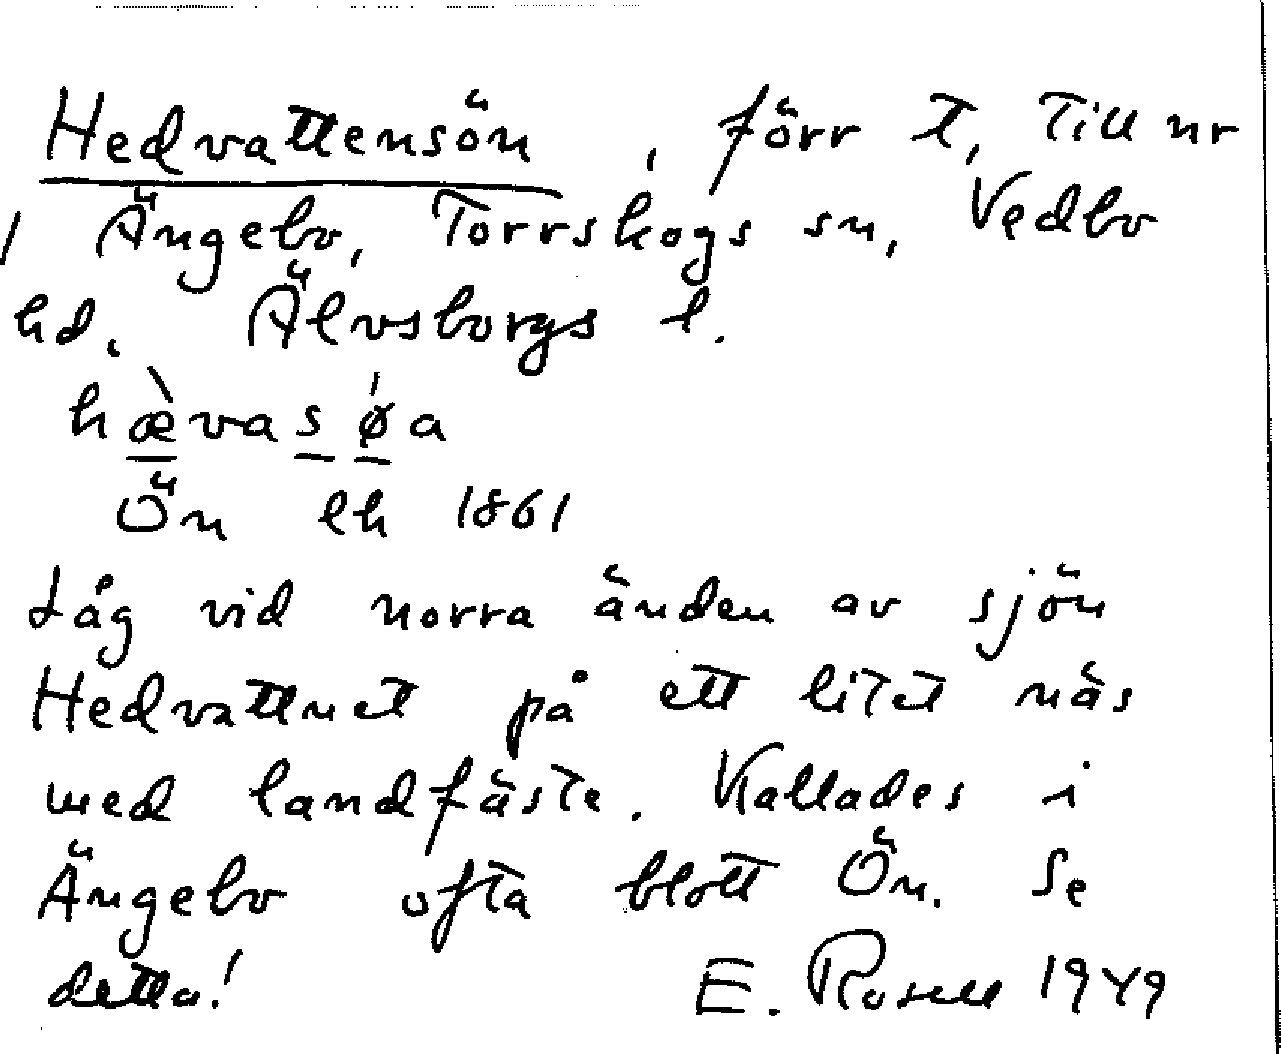 Hedvattensön, förr t, Till nr
1 Ängebo, Torrskogs sn, Vedbo
hd. Älvsborgs l.
hæ̀vasǿa
Ön lk 1861
Låg vid norra änden av sjön
Hedvattnet på ett litet näs
med landfäste. Kallades i
Ängebo ofta blott Ön. Se
detta! E. Rosell 1949